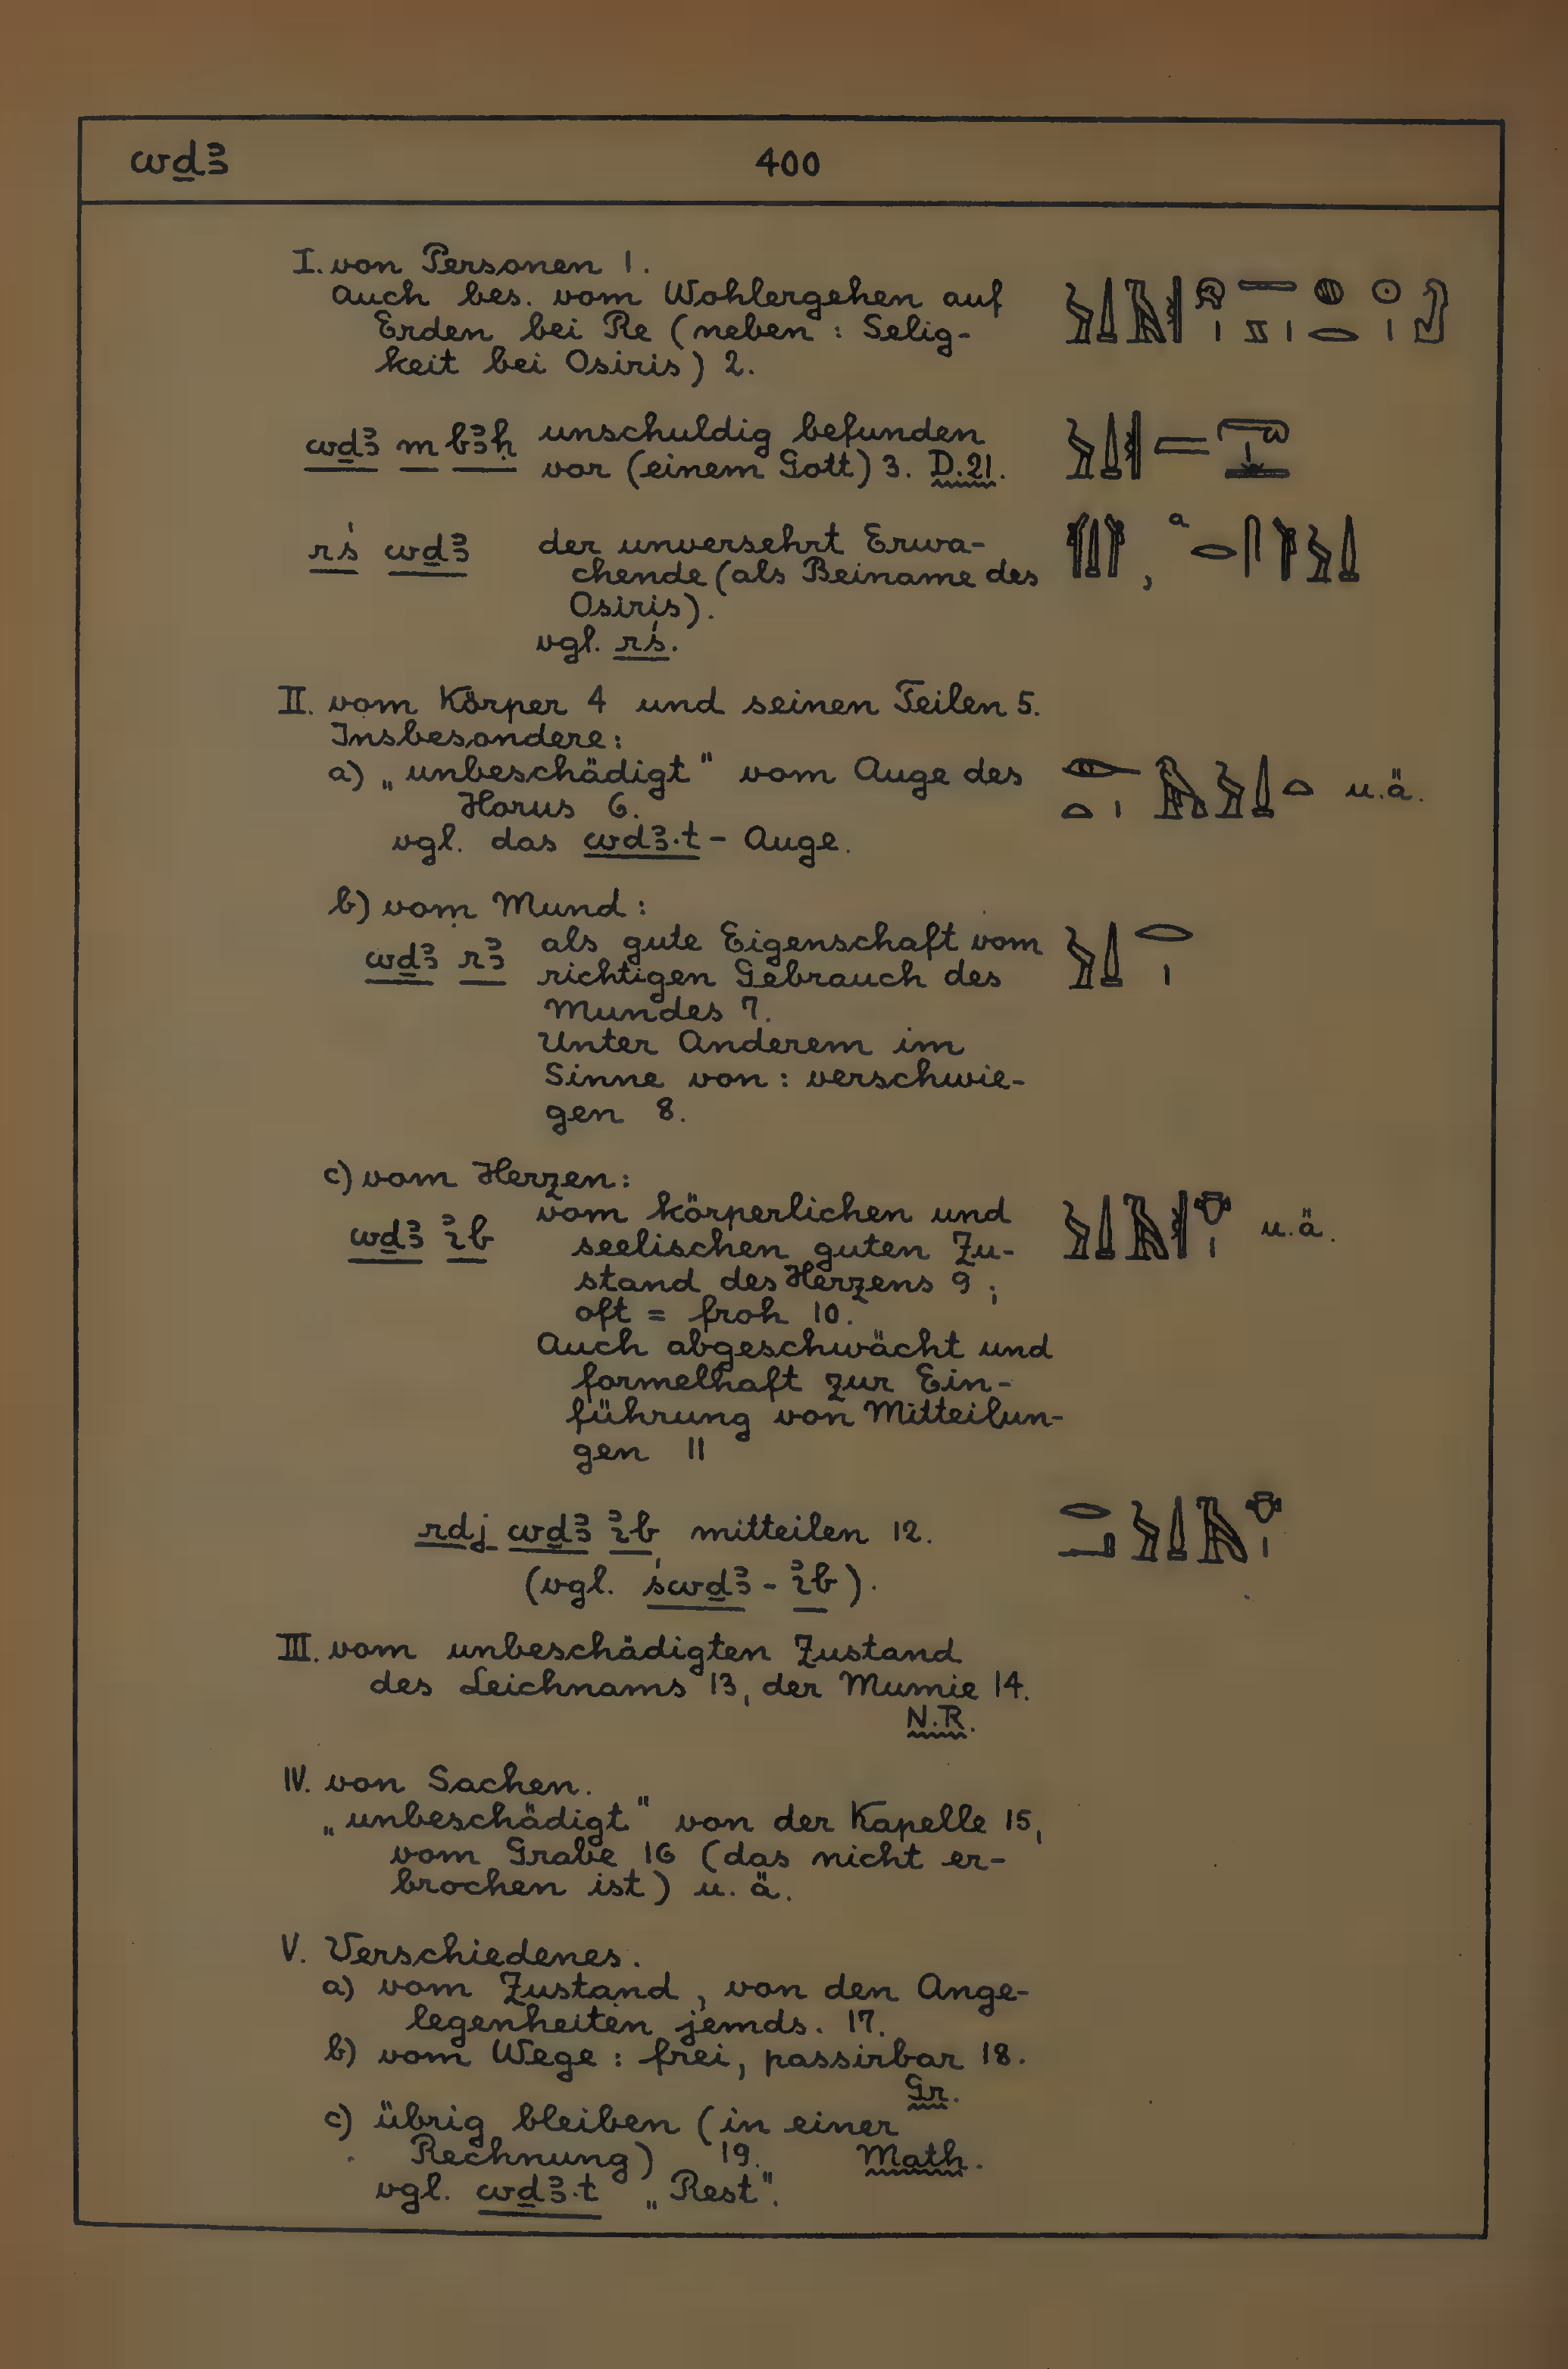 wḏꜣ 400
I. von Personen 1.
Auch bes. vom Wohlergehen auf
Erden bei Re (neben : Selig-
keit bei Osiris) 2.
wḏꜣ m bꜣḥ unschuldig befunden
vor (einem Gott) 3. D.21.
rś wḏꜣ der unversehrt Erwa-
chende (als Beiname des
Osiris).
vgl. rś.
II. vom Körper 4 und seinen Teilen 5.
Insbesondere:
a) „unbeschädigt" vom Auge des
Horus 6. u.ä.
vgl. das wdꜣ.t - Auge.
b) vom Mund :
wḏꜣ rꜣ als gute Eigenschaft vom
richtigen Gebrauch des
Mundes 7.
Unter Anderem im
Sinne von : verschwie-
gen 8.
c) vom Herzen :
wḏꜣ ꞽb vom körperlichen und u.ä.
seelischen guten Zu-
stand des Herzens 9 ;
oft = froh 10.
Auch abgeschwächt und
formelhaft zur Ein-
führung von Mitteilun-
gen 11
rdj wḏꜣ ꞽb mitteilen 12.
(vgl. świḏꜣ - ꞽb).
III. vom unbeschädigten Zustand
des Leichnams 13, der Mumie 14.
N.R.
IV. von Sachen.
„unbeschädigt" von der Kapelle 15,
vom Grabe 16 (das nicht er-
brochen ist) u. ä.
V. Verschiedenes.
a) vom Zustand, von den Ange-
legenheiten jemds. 17.
b) vom Wege : frei, passirbar 18.
Gr.
c) übrig bleiben (in einer
Rechnung) 19. Math.
vgl. wḏꜣ.t „Rest".